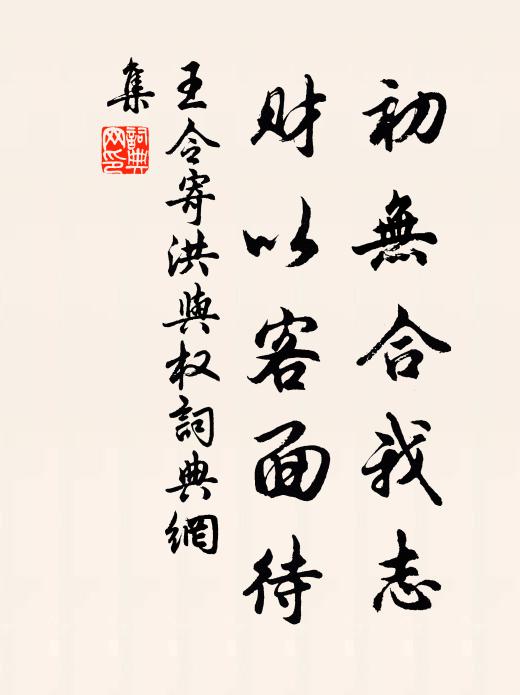 初無合我志
財以客面待
王令寄洪與权詞典網
集
詞典网印